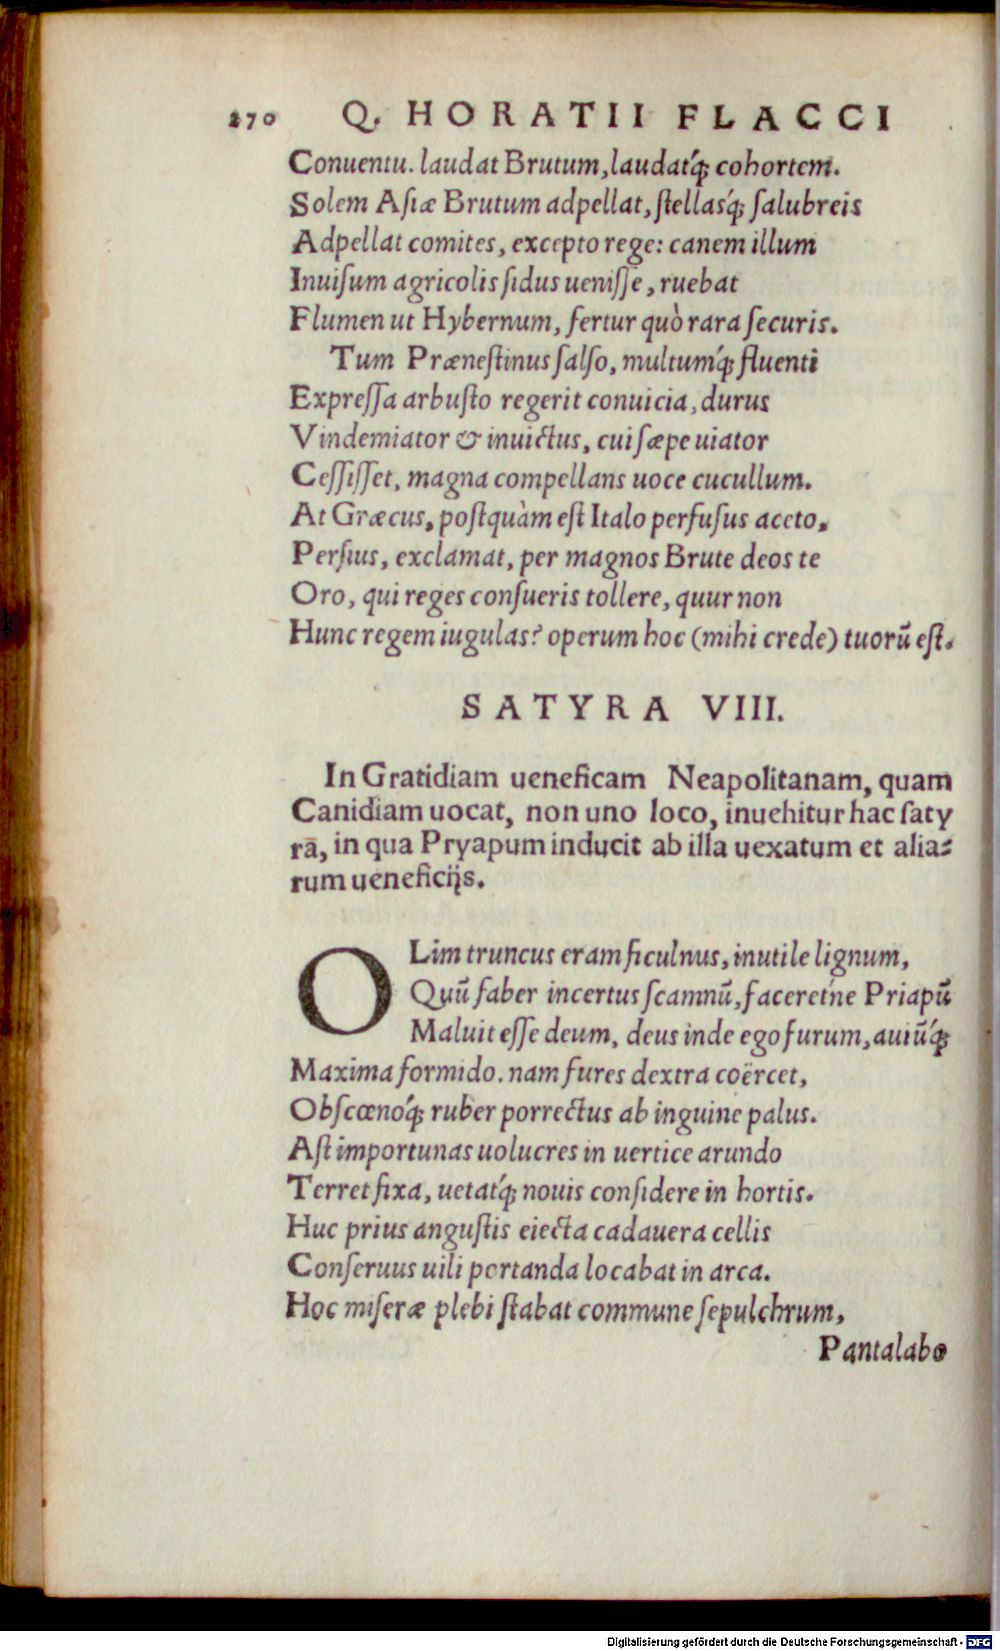 270 Q. HORATII FLACCI
Conuentu. laudat Brutum, laudatq́; cohortem.
Solem Asiæ Brutum adpellat, stellasq́; salubreis
Adpellat comites, excepto rege: canem illum
Inuisum agricolis sidus uenisse, ruebat
Flumen ut Hybernum, fertur quò rara securis.
Tum Prænestinus salso, multumq́; fluenti
Expressa arbusto regerit conuicia, durus
Vindemiator & inuictus, cui sæpe uiator
Cessisset, magna compellans uoce cucullum.
At Græcus, postquàm est Italo perfusus aceto,
Persius, exclamat, per magnos Brute deos te
Oro, qui reges consueris tollere, quur non
Hunc regem iugulas? operum hoc (mihi crede) tuorū est.
SATYRA VIII.
In Gratidiam ueneficam Neapolitanam, quam
Canidiam uocat, non uno loco, inuehitur hac saty
rā, in qua Pryapum inducit ab illa uexatum et alia=
rum ueneficijs.
OLim truncus eram ficulnus, inutile lignum,
Quū faber incertus scamnū, faceret'ne Priapū
Maluit esse deum, deus inde ego furum, auiūq́;
Maxima formido. nam fures dextra coërcet,
Obscœnoq́; ruber porrectus ab inguine palus.
Ast importunas uolucres in uertice arundo
Terret fixa, uetatq́; nouis considere in hortis.
Huc prius angustis eiecta cadauera cellis
Conseruus uili portanda locabat in arca.
Hoc miseræ plebi stabat commune sepulchrum,
Pantalabo
Digitalisierung gefördert durch die Deutsche Forschungsgemeinschaft - DFG